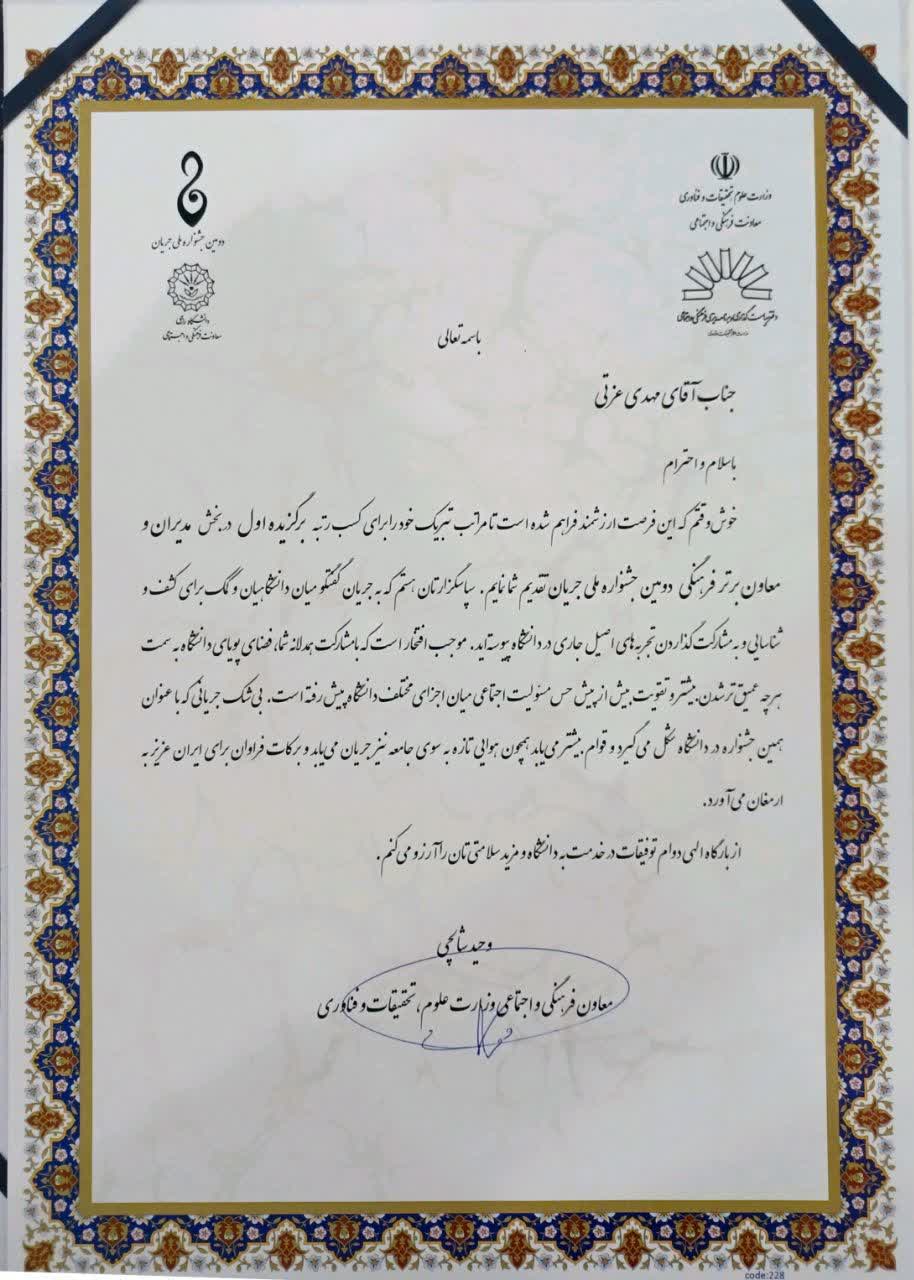 وزارت علوم تحقیقات و فناوری
معاونت فرهنگی و اجتماعی
دفتر سیاست گذاری و برنامه ریزی فرهنگی و اجتماعی
دومین جشنواره ملی جریان
دانشگاه رازی
معاونت فرهنگی و اجتماعی
باسمه تعالی
جناب آقای مهدی عزتی
باسلام و احترام
خوش وقتم که این فرصت ارزشمند فراهم شده است تا مراتب تبریک خود را برای کسب رتبه برگزیده اول در بخش مدیران و
معاون برتر فرهنگی دومین جشنواره ملی جریان تقدیم شما نمایم. سپاسگزارتان هستم که به جریان گفتگو میان دانشگاهیان و کمک برای کشف و
شناسایی و به مشارکت گذاردن تجربه های اصیل جاری در دانشگاه پیوسته اید. موجب افتخار است که با مشارکت همدلانه شما، فضای پویای دانشگاه به سمت
هرچه عمیق تر شدن بیشتر و تقویت بیش از پیش حس مسئولیت اجتماعی میان اجزای مختلف دانشگاه پیش رفته است. بی شک جریانی که با عنوان
همین جشنواره در دانشگاه شکل می گیرد و قوام بیشتر می یابد همچون هوایی تازه به سوی جامعه نیز جریان می یابد و برکات فراوان برای ایران عزیز به
ارمغان می آورد.
از بارگاه الهی دوام توفیقات در خدمت به دانشگاه و مزید سلامتی تان را آرزو می کنم.
وحید شالچی
معاون فرهنگی و اجتماعی وزارت علوم، تحقیقات و فناوری
code:228